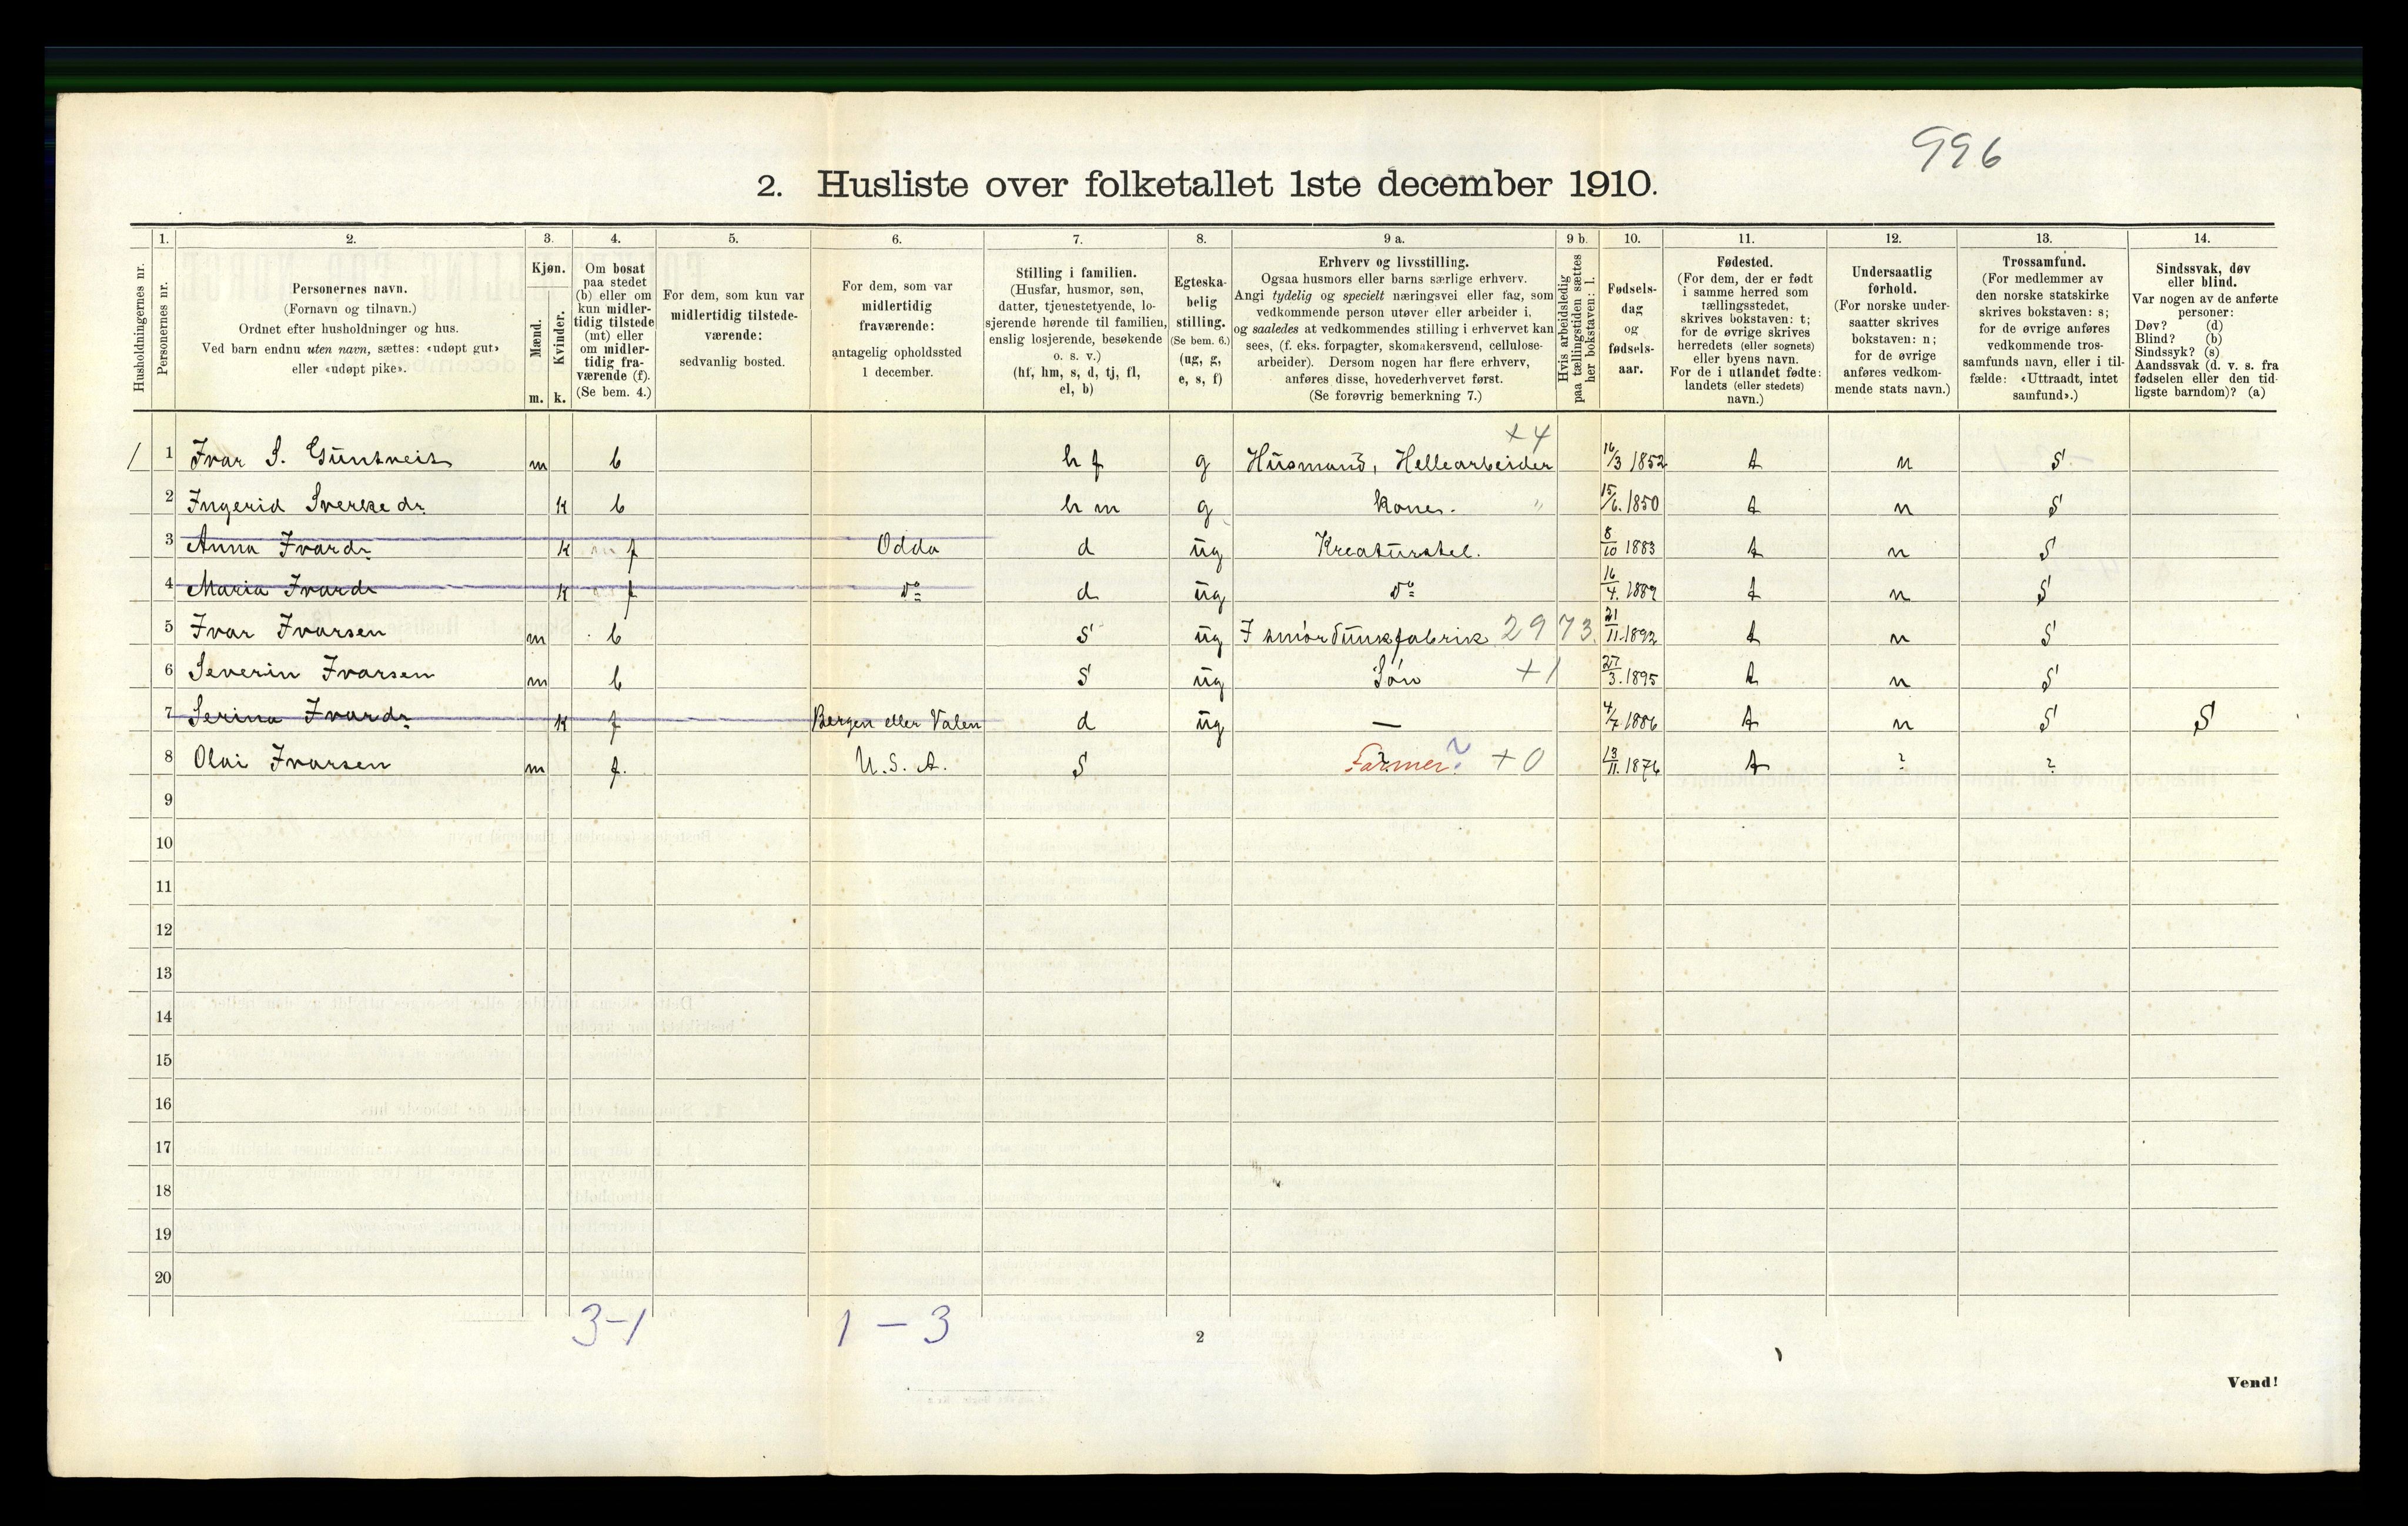 996
2. Husliste over folketallet 1ste december 1910.
Husholdningernes nr.
1.
Personernes nr.
2.
Personernes navn.
(Fornavn og tilnavn.)
Ordnet efter husholdninger og hus.
Ved barn endnu uten navn, sættes: «udøpt gut»
eller «udøpt pike».
3.
Kjøn.
Mænd.
Kvinder.
m. k.
4.
Om bosat
paa stedet
(b) eller om
kun midler-
tidig tilstede
(mt) eller
om midler-
tidig fra-
værende (f).
(Se bem. 4.)
5.
For dem, som kun var
midlertidig tilstede-
værende:
sedvanlig bosted.
6.
For dem, som var
midlertidig
fraværende:
antagelig opholdssted
1 december.
7.
Stilling i familien.
(Husfar, husmor, søn,
datter, tjenestetyende, lo-
sjerende hørende til familien,
enslig losjerende, besøkende
o. s. v.)
(hf, hm, s, d, tj, fl,
el, b)
8.
Egteska-
belig
stilling.
(Se bem. 6.)
(ug, g,
e, s, f)
9 a.
Erhverv og livsstilling.
Ogsaa husmors eller barns særlige erhverv.
Angi tydelig og specielt næringsvei eller fag, som
vedkommende person utøver eller arbeider i,
og saaledes at vedkommendes stilling i erhvervet kan
sees, (f. eks. forpagter, skomakersvend, cellulose-
arbeider). Dersom nogen har flere erhverv,
anføres disse, hovederhvervet først.
(Se forøvrig bemerkning 7.)
9 b.
Hvis arbeidsledig
paa tællingstiden sættes
her bokstaven: l.
10.
Fødsels-
dag
og
fødsels-
aar.
11.
Fødested.
(For dem, der er født
i samme herred som
tællingsstedet,
skrives bokstaven: t;
for de øvrige skrives
herredets (eller sognets)
eller byens navn.
For de i utlandet fødte:
landets (eller stedets)
navn.)
12.
Undersaatlig
forhold.
(For norske under-
saatter skrives
bokstaven: n;
for de øvrige
anføres vedkom-
mende stats navn.)
13.
Trossamfund.
(For medlemmer av
den norske statskirke
skrives bokstaven: s;
for de øvrige anføres
vedkommende tros-
samfunds navn, eller i til-
fælde: «Uttraadt, intet
samfund».)
14.
Sindssvak, døv
eller blind.
Var nogen av de anførte
personer:
Døv? (d)
Blind? (b)
Sindssyk? (s)
Aandssvak (d. v. s. fra
fødselen eller den tid-
ligste barndom)? (a)
1 1 Ivar S. Guntveit m b hf g Husmand, Hellearbeider +4 16/3 1852 t n S
2 Ingerid Sverkedr. k b hm g Kone. " 15/6. 1850 t n S
3 Anna Ivardr k f Odda d ug Kreaturstel. 8/10 1883 t n S
4 Maria Ivardr k f do d ug do 16/4. 1889 t n S
5 Ivar Ivarsen m b S ug I smørdunkfabrik 2973. 21/11. 1892 t n S
6 Severin Ivarsen m b S ug Søn +1 27/3. 1895 t n S
7 Serina Ivardr k f Bergen eller Valen d ug — 4/7 1886 t n S S
8 Olai Ivarsen m f. U. S. A. S Farmer? +0 13/11. 1876 t ? ?
9
10
11
12
13
14
15
16
17
18
19
20
3-1 1-3
2
Vend!